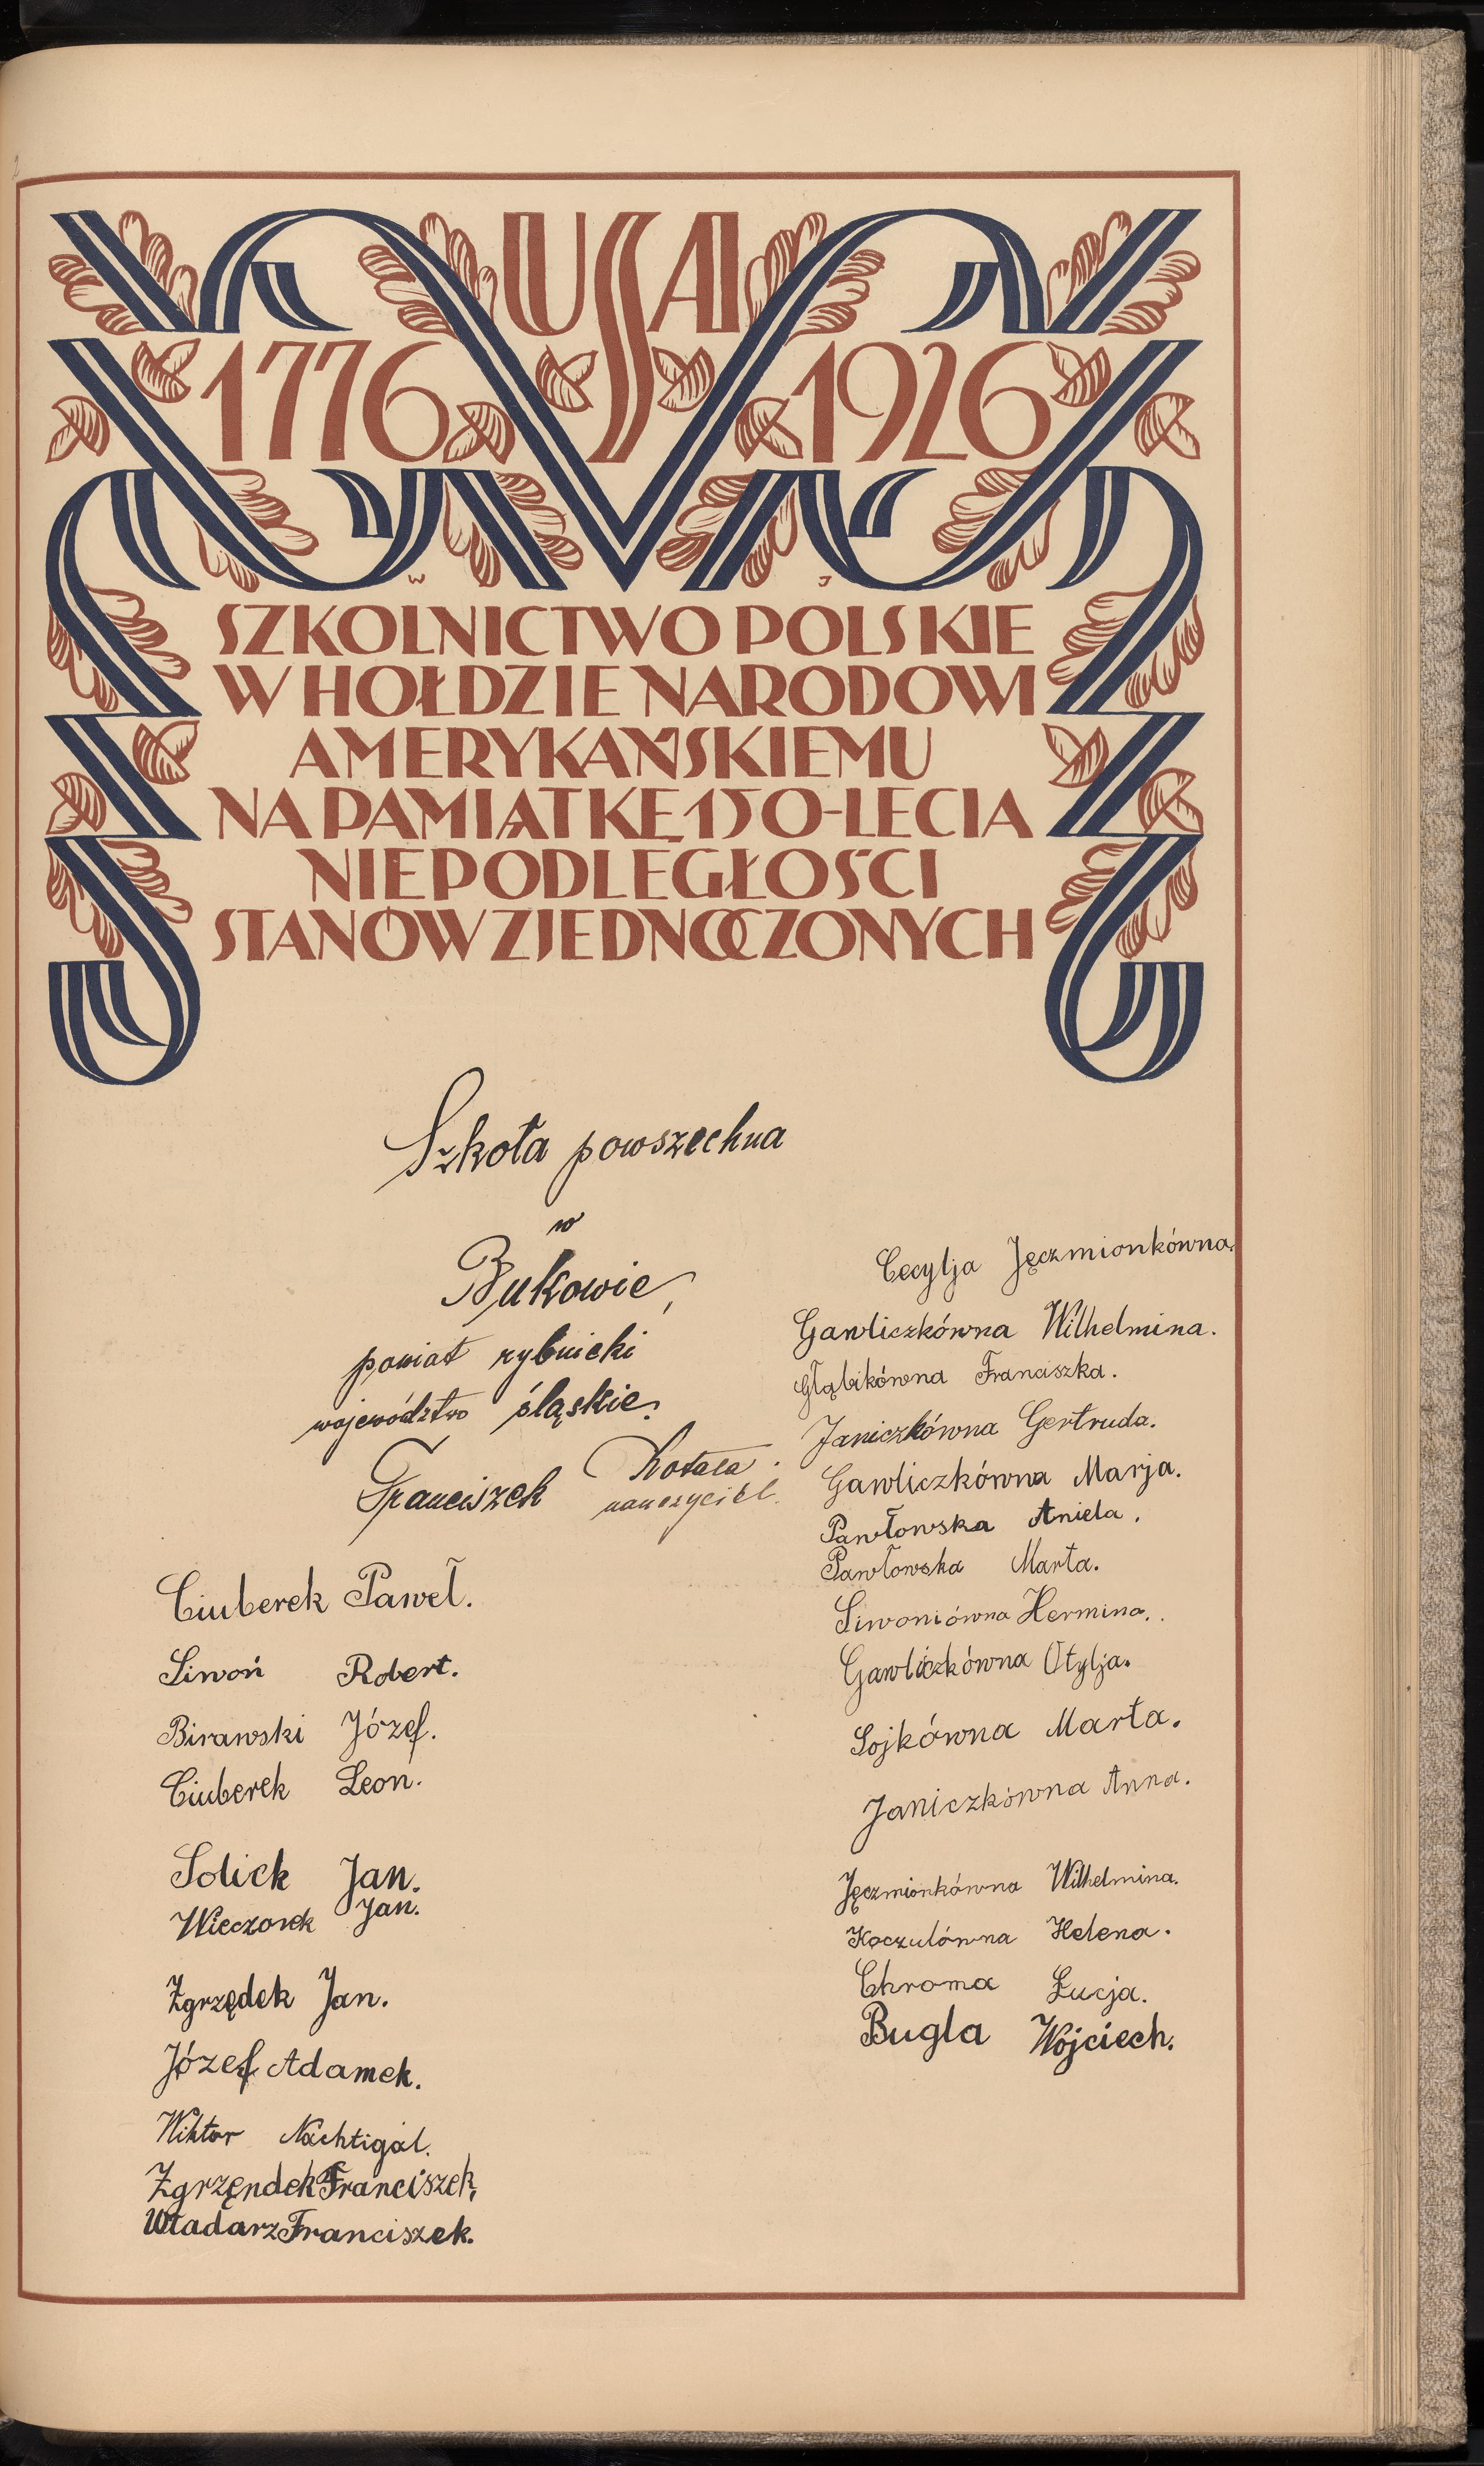 USA
1776 1926
W J
SZKOLNICTWO POLSKIE
W HOŁDZIE NARODOWI
AMERYKAŃSKIEMU
NA PAMIĄTKĘ 150-LECIA
NIEPODLEGŁOŚCI
STANÓW ZJEDNOCZONYCH
Szkoła powszechna
w
Bukowie,
powiat rybnicki
województwo śląskie.
Franciszek Kotala
nauczyciel.
Ciuberek Paweł.
Siwoń Robert.
Birawski Józef.
Ciuberek Leon.
Solich Jan.
Wieczorek Jan.
Zgrzędek Jan.
Józef Adamek.
Wiktor Nachtigal.
Zgrzęndek Franciszek,
Władarz Franciszek.
Cecylja Jęczmionkówna.
Gawliczkówna Wilhelmina.
Głąbikówna Franciszka.
Janiczkówna Gertruda.
Gawliczkówna Marja.
Pawłowska Aniela.
Pawłowska Marta.
Siwoniówna Hermina.
Gawliczkówna Otylja.
Sojkówna Marta.
Janiczkówna Anna.
Jęczmionkówna Wilhelmina.
Koczulówna Helena.
Chroma Łucja.
Bugla Wojciech.